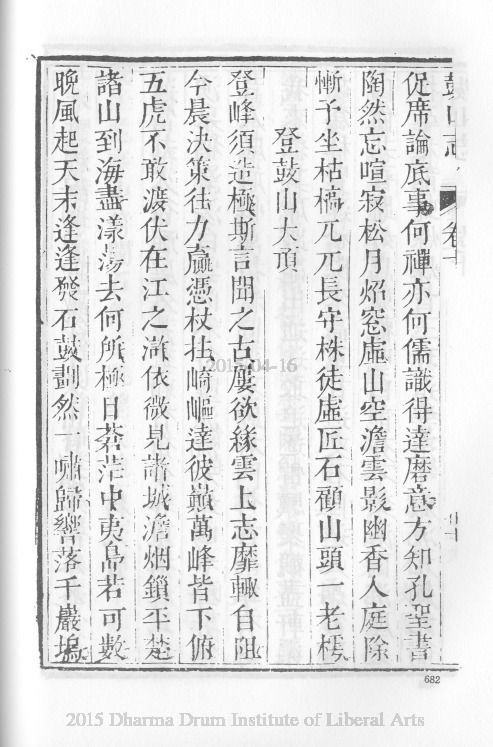 鼓山志 卷十
促席論底事何禪亦何儒識得達磨意方知孔聖書
陶然忘喧寂松月炤窓虛山空澹雲影幽香入庭除
慚予坐枯槁兀兀長守株徒虛匠石顧山頭一老樗
登鼓山大頂
登峰須造極斯言聞之古屢欲緣雲上志靡輙自阻
今晨決策往力羸憑杖拄崎嶇達彼巔萬峰皆下俯
五虎不敢渡伏在江之滸依微見諸城澹烟鎖平楚
諸山到海盡漾蕩去何所極目蒼茫中夷島若可數
晚風起天末逢逢發石鼓劃然一嘯歸響落千巖塢
2015-04-16
682
2015 Dharma Drum Institute of Liberal Arts